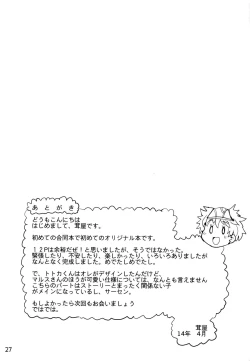 あとがき
どうもこんにちは
はじめまして、茸屋です。
初めての合同本で初めてのオリジナル本です。
12Pは余裕だぜ!と思いましたが、そうではなかった。
緊張したり、不安したり、楽しかったり、いろいろありましたが
なんとなく完成しました。めでたしめでたし。
で、トトカくんはオレがデザインしたんだけど、
マルスさんのほうが可愛い仕様については、なんとも言えません
こちらのパートはストーリーとまったく関係ない子
がメインになっているし、サーセン。
もしよかったら次回もお会いましょう
ではでは。
茸屋
14年 4月
27